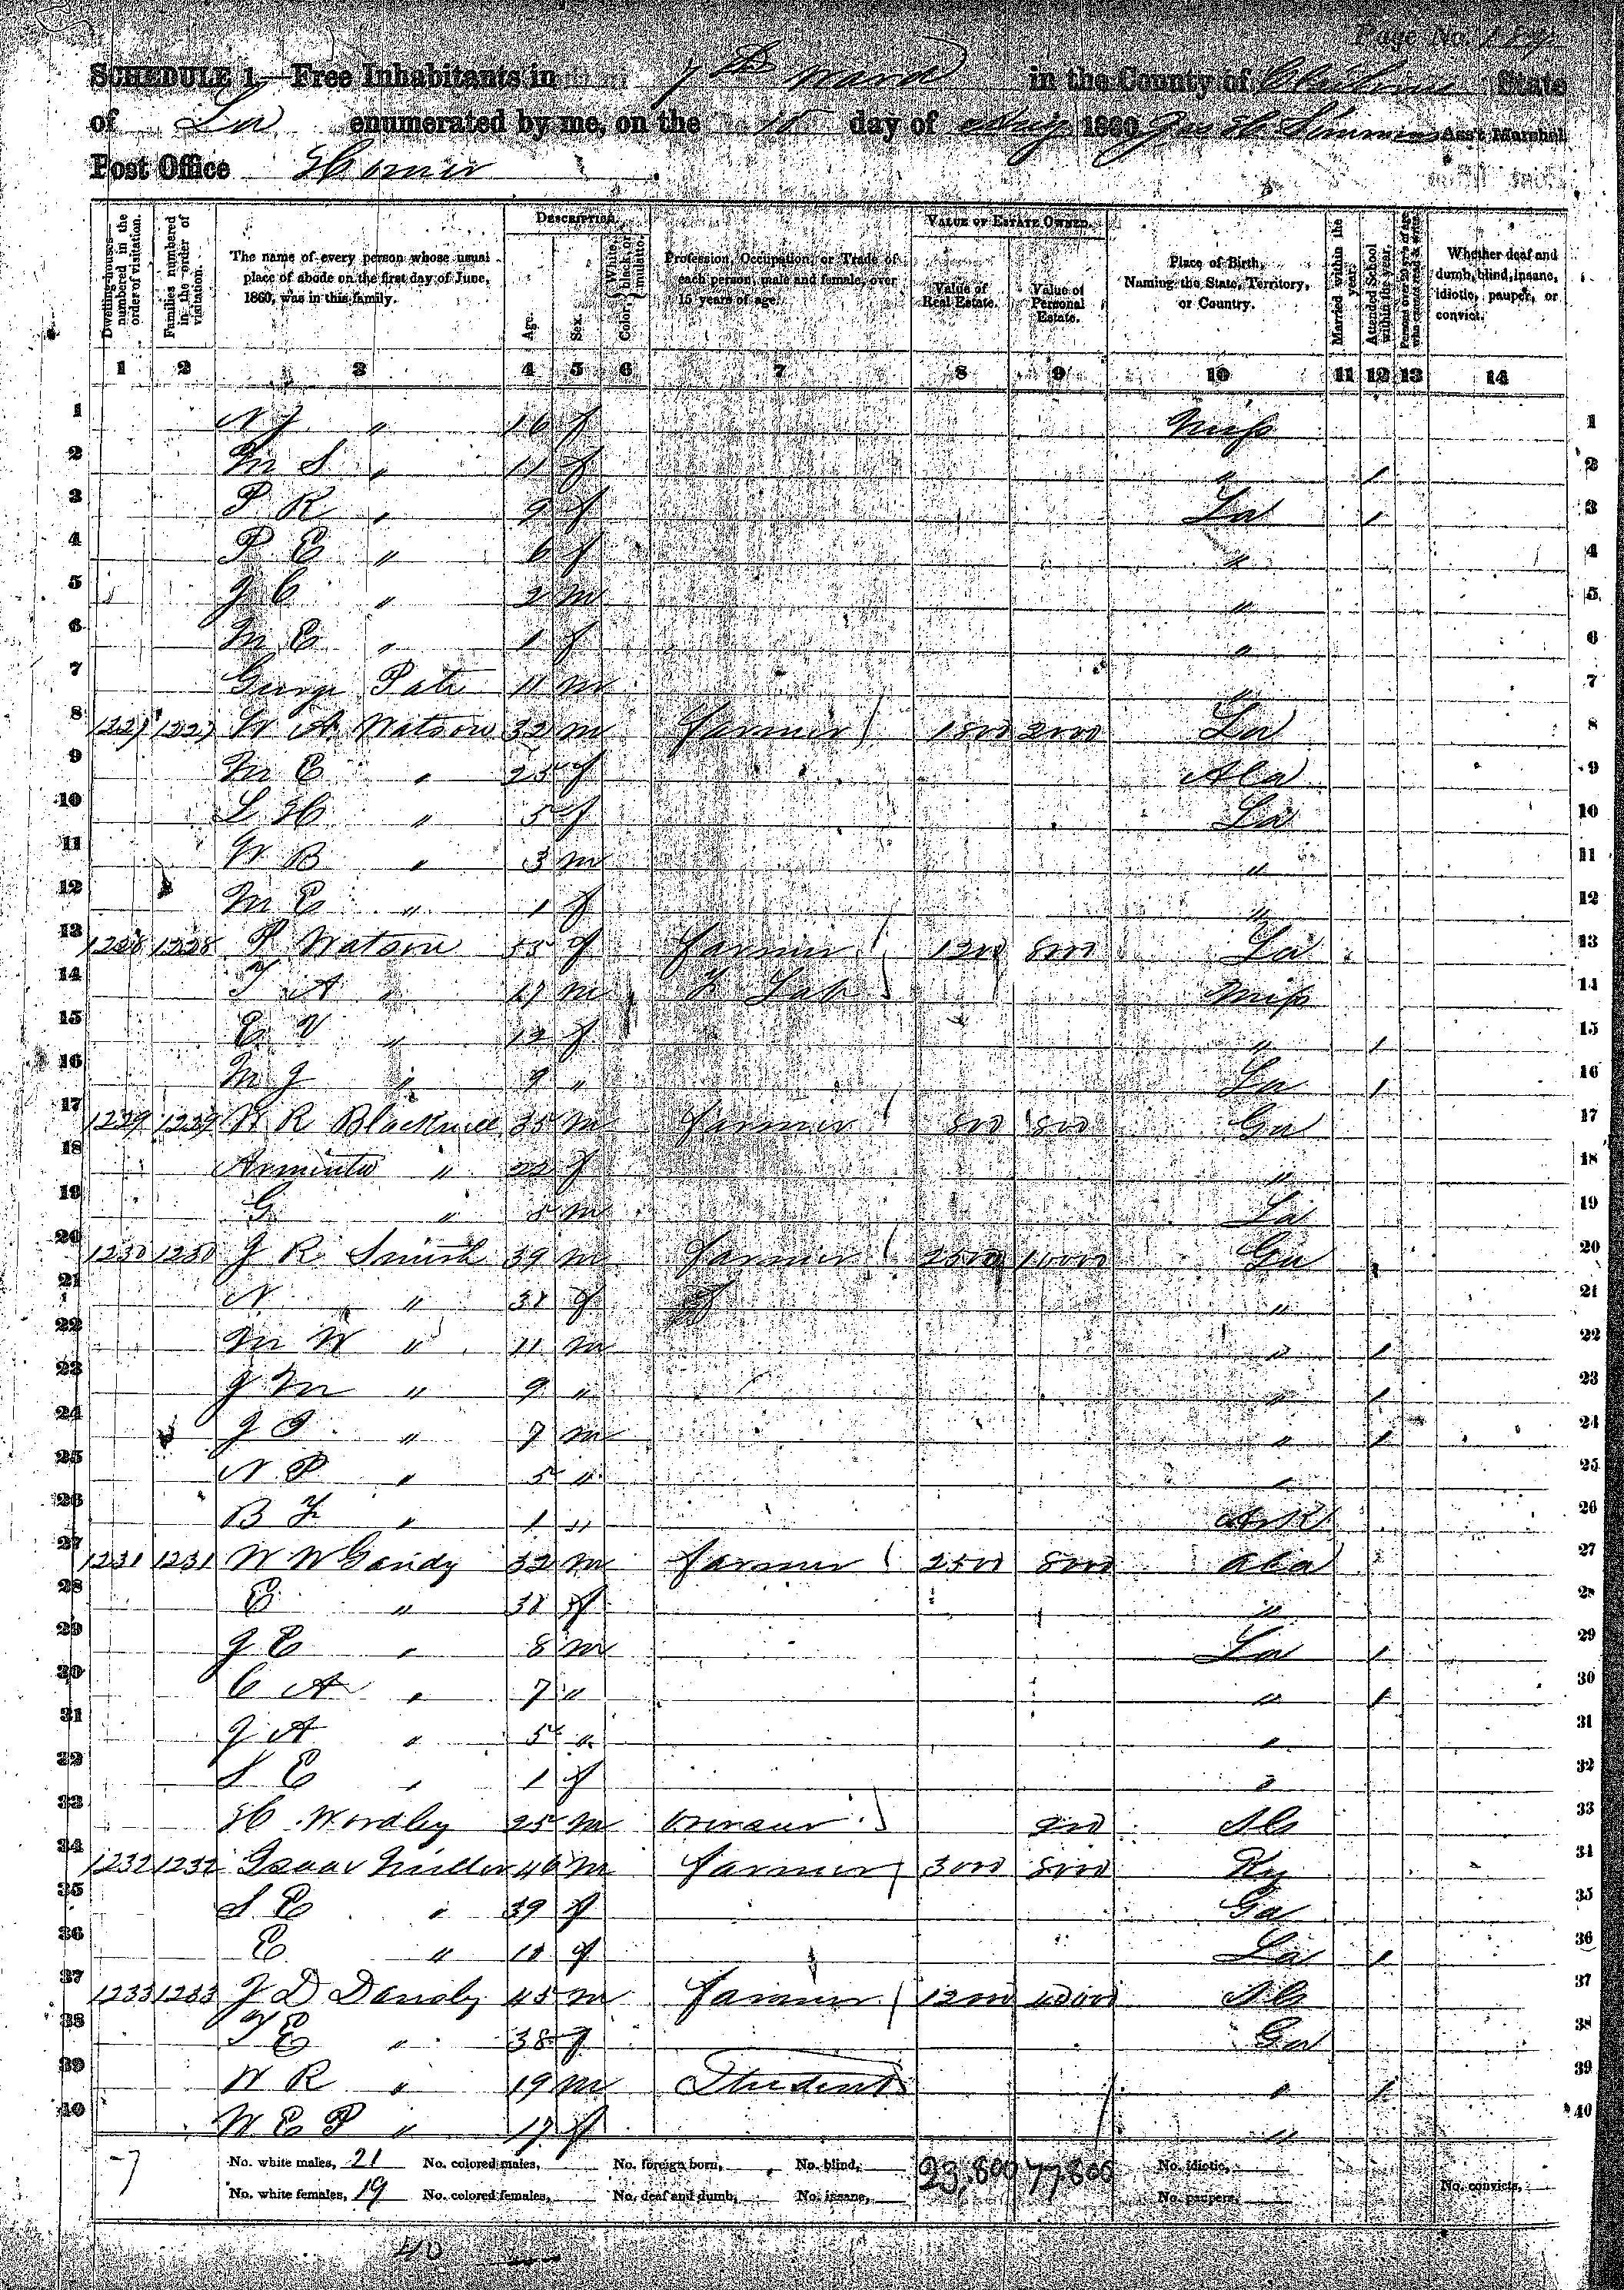 Page No.
SCHEDULE 1.—Free Inhabitants in 7th Ward in the County of Claiborne State
of La enumerated by me, on the day of Aug 1860 Ass't Marshal
Post Office Homer
Dwelling-houses numbered in the order of visitation.
Families numbered in the order of visitation.
The name of every person whose usual place of abode on the first day of June, 1860, was in this family.
DESCRIPTION.
Age.
Sex.
Color, White, black, or mulatto.
Profession, Occupation, or Trade of each person, male and female, over 15 years of age.
VALUE OF ESTATE OWNED.
Value of Real Estate.
Value of Personal Estate.
Place of Birth, Naming the State, Territory, or Country.
Married within the year.
Attended School within the year.
Whether deaf and dumb, blind, insane, idiotic, pauper, or convict.
1 2 3 4 5 6 7 8 9 10 11 12 13 14
1 N J " 16 f Miss 1
2 M S " 11 f " / 2
3 P R " 9 f La / 3
4 P E " 6 f " 4
5 J C " 2 m " 5
6 M E " 1 f " 6
7 George Pate 11 m " 7
8 1227 1227 W A Watson 32 m Farmer 1800 2000 La 8
9 M E " 25 f Ala 9
10 L H " 5 f La 10
11 W B " 3 m " 11
12 M E " 1 f " 12
13 1228 1228 P Watson 55 f Farmer 1200 8000 La 13
14 T A " 17 m F Lab Miss 14
15 E V " 12 f " / 15
16 M J " 9 " La / 16
17 1229 1229 R Blackwell 35 m Farmer 800 800 Ga 17
18 Arminta " 22 f " 18
19 G " m La 19
20 1230 1230 J R Smith 39 m Farmer 2500 10000 Ga 20
21 N " 31 f " 21
22 M W " 11 m " / 22
23 J M " 9 " " / 23
24 J " 7 m " / 24
25 N P " 5 " " 25
26 B F " 1 " Ark 26
27 1231 1231 W W Gandy 32 m Farmer 2500 8000 Ala 27
28 E " 31 f " 28
29 J E " 8 m La / 29
30 C A " 7 " " / 30
31 J A " 5 " " 31
32 S E " 1 f " 32
33 H 25 m 33
34 1232 1232 Isaac Miller 46 m Farmer 3000 8000 Ky 34
35 S E " 39 f Ga 35
36 E " f La / 36
37 1233 1233 J D Dansby 45 m Farmer 12000 40000 37
38 T E " 38 f Ga 38
39 W R " 19 m Student " / 39
40 W E P " 17 f " 40
No. white males, 21 No. colored males, No. foreign born, No. blind, 23,800 77800 No. idiotic,
No. white females, 19 No. colored females, No. deaf and dumb, No. insane, No. paupers, No. convicts,
40